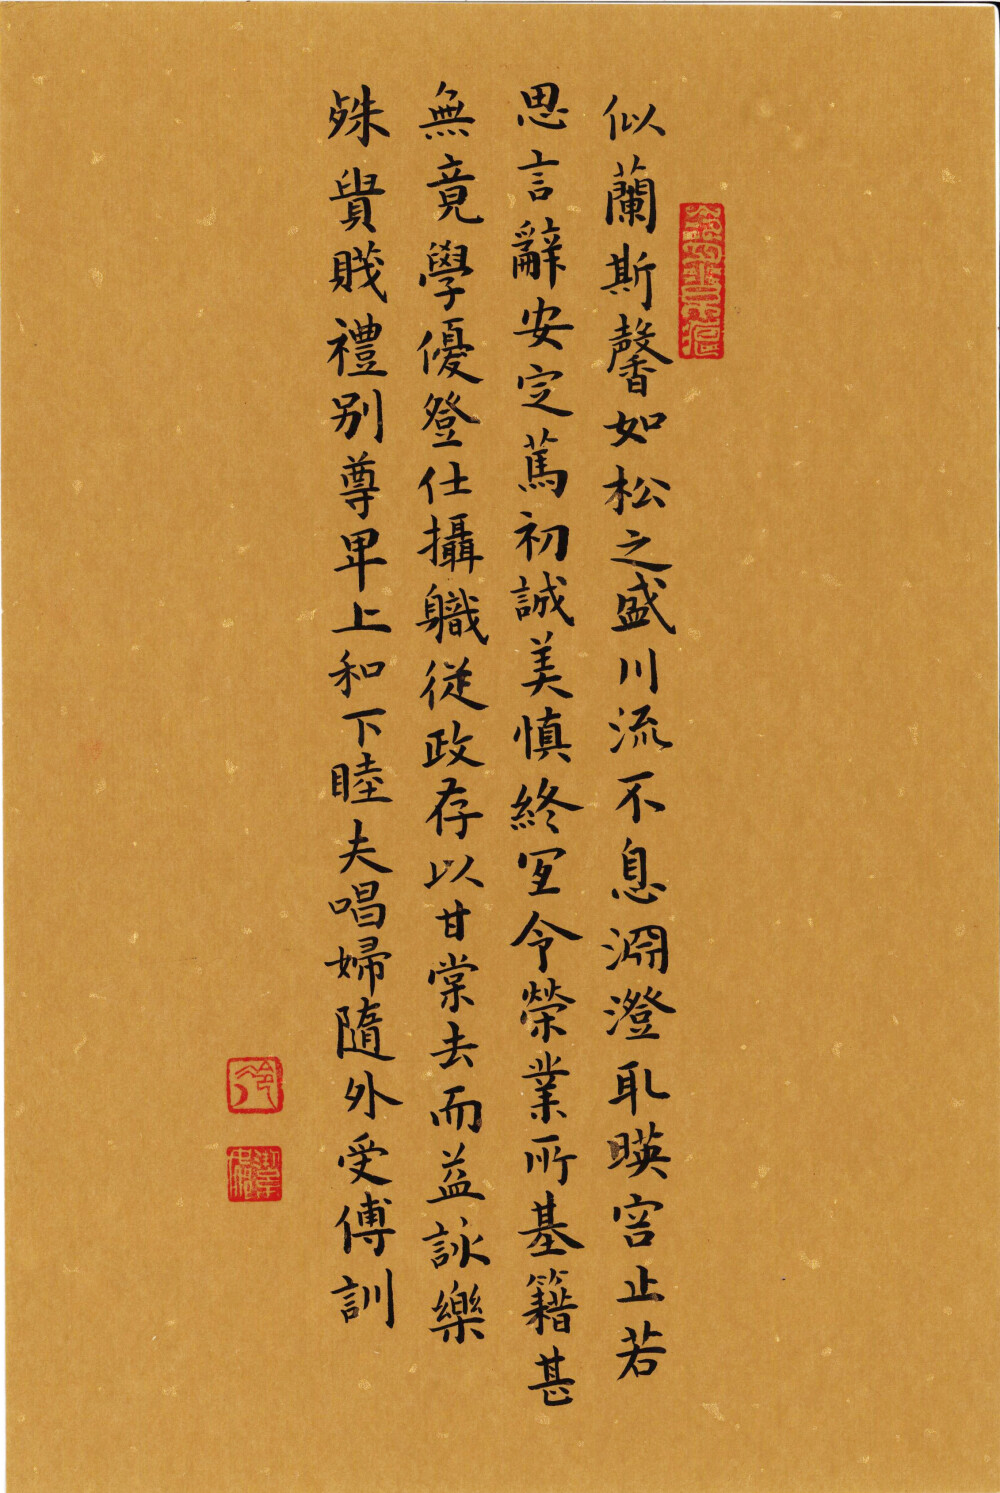 似蘭斯馨如松之盛川流不息淵澄取暎容止若
思言辭安定篤初誠美慎終宜令榮業所基籍甚
無竟學優登仕攝職從政存以甘棠去而益詠樂
殊貴賤禮別尊卑上和下睦夫唱婦隨外受傅訓